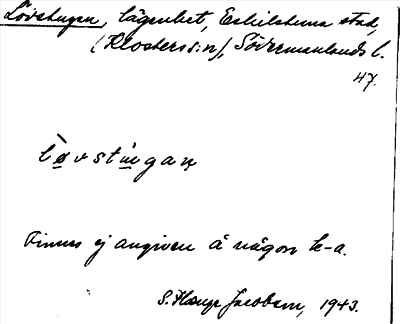 Lövstugan, lägenhet, Eskilstuna stad,
(Klosters s:n), Södermanlands l.
47.
lø̀vstu̇gan̥
Finnes ej angiven å någon k-a.
S. Hampe Jacobsen, 1943.